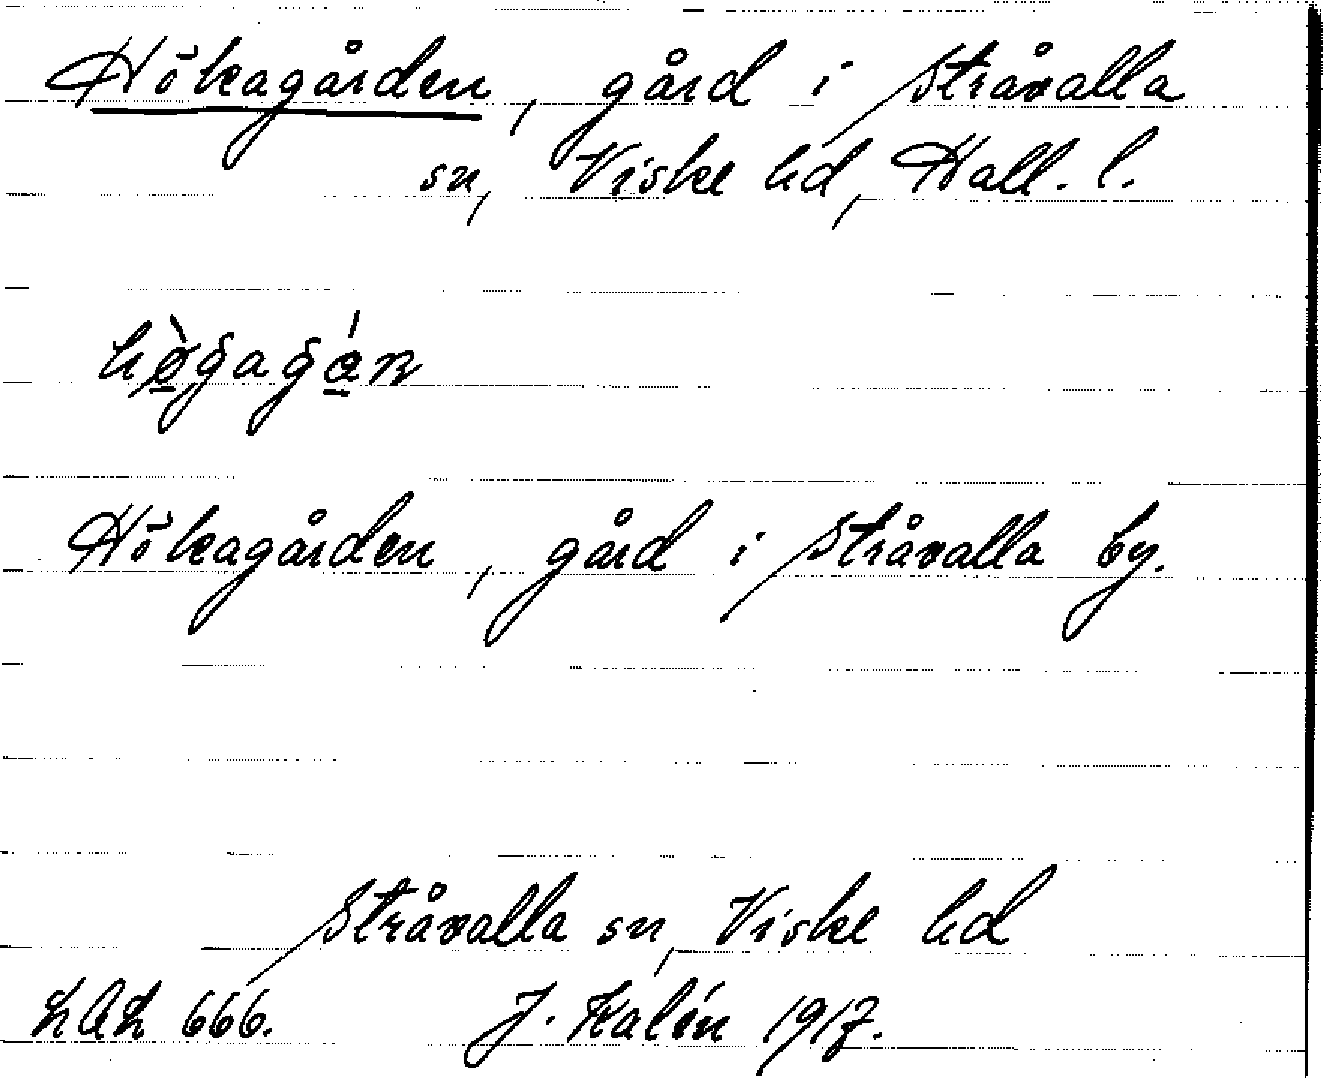 Hökagården, gård i Stråvalla
sn, Viske hd, Hall. l.
hø̀gagán
Hökagården, gård i Stråvalla by.
Stråvalla sn, Viske hd
LAL 666. J. Kalén 1917.